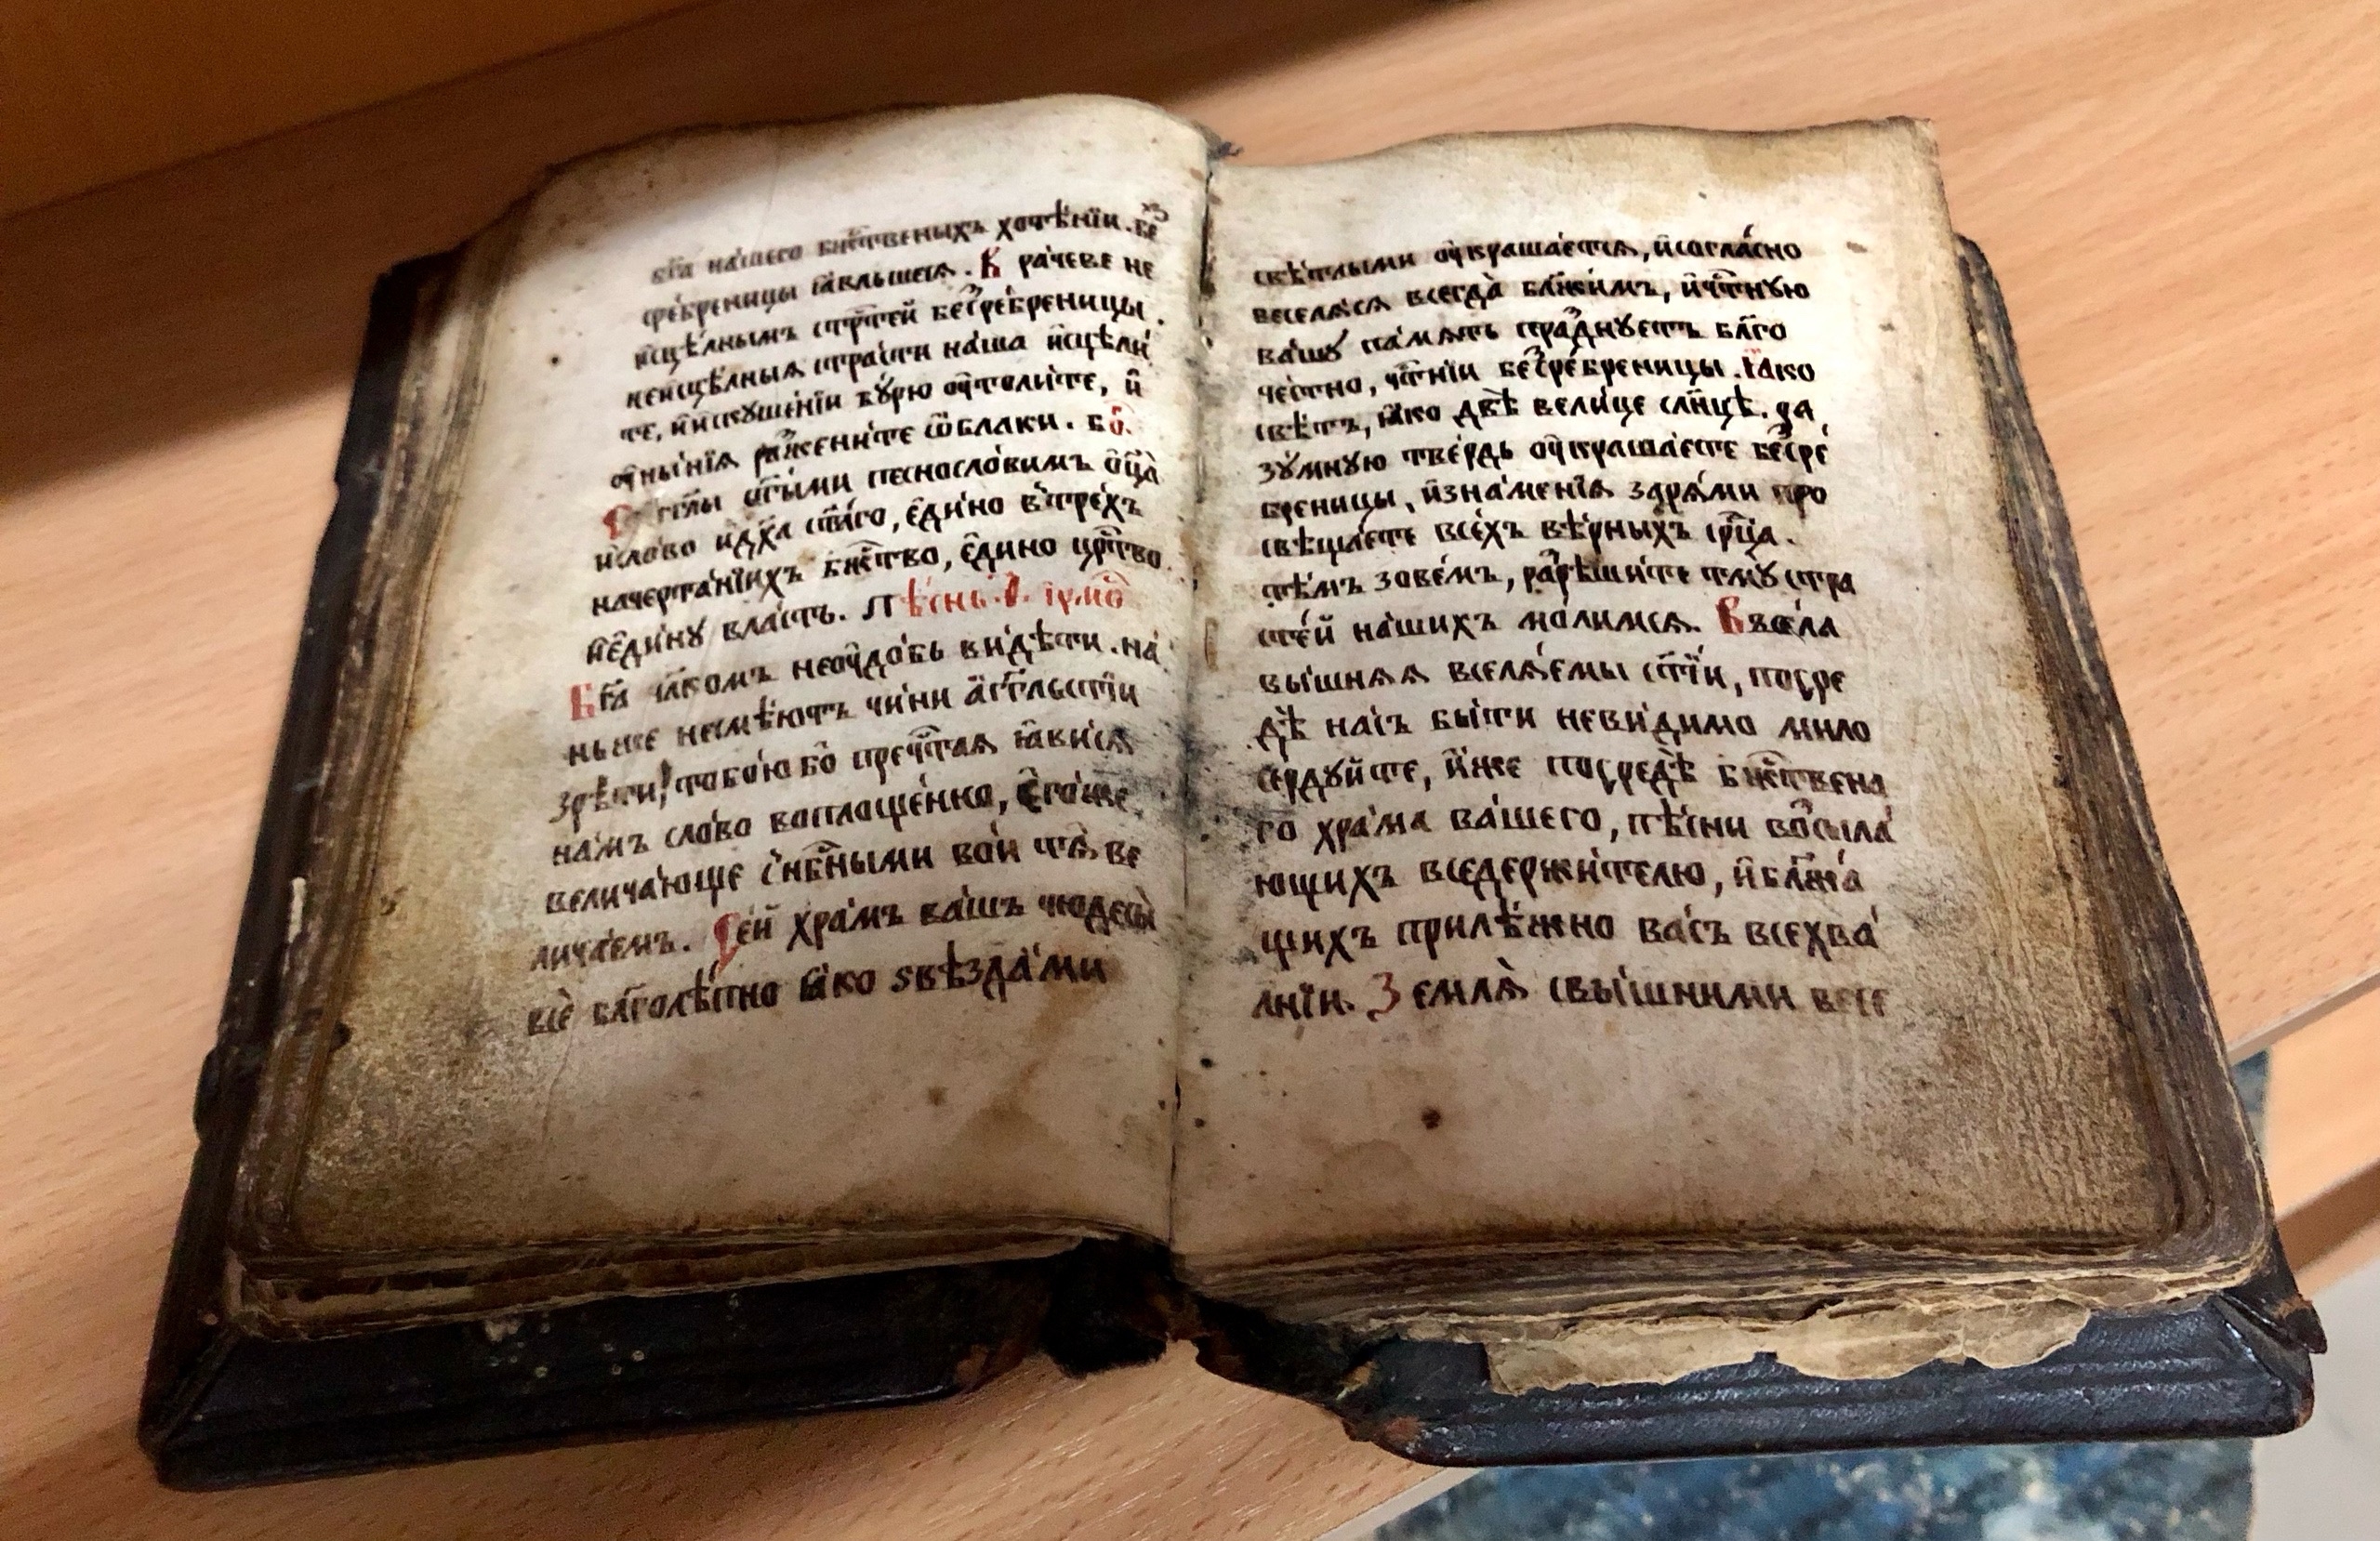 бг҃а на́шего бж҃е́ственыхъ хотѣ́нїи. бе
сре́бреницы ꙗ҆́вльшеся. В рачеве не
и҆сцѣ́лнымъ стрⷭ҇те́й бесре́бреницы.
неисцѣ́лныѧ стра́сти на́ша и҆сцѣли́
те, и҆искꙋше́нїи бꙋ́рю ᲂу҆толи́те, и҆
ᲂу҆ны́нїѧ ражжени́те ѡ҆́блаки. бо҃.
ст҃ы́ми песносло́вимъ ѻ҆ц҃а̀
и҆сло́во и҆дх҃а ст҃а́го, є҆ди́но втре́хъ
начерта́нїихъ бж҃ество̀, є҆ди́но црⷭ҇тво
и҆є҆ди́нꙋ вла́сть. Пѣ́снь. ѳ҃. їрмо́
Бг҃а чл҃комъ неᲂудо́бь ви́дѣти. на́
ньже несмѣ́ютъ чи́ни а҆́гг҃льстїи
зрѣ́ти, тобо́ю бо̀ преч҃таѧ ꙗ҆ви́сѧ
на́мъ сло́во воплоще́нно, є҆го́же
велича́юще снб҃ными во́и тѧ̀ ве
лича́емъ. Се́й хра́мъ ва́шъ чюдесы̀
всѐ бл҃голѣ́пно ꙗ҆́ко ѕвѣзда́ми
свѣ́тлыми ᲂу҆краша́етсѧ, и҆согла́сно
веселѧ́сѧ всегда̀ бл҃жи́мъ, и҆чⷭ҇тнꙋю
ва́шꙋ па́мѧть пра́зднꙋетъ бл҃го
че́стно, чⷭ҇тнїи бесре́бреницы. ꙗ҆́ко
свѣ́тъ, ꙗ҆́ко двѣ̀ вели́це сл҃нцѣ. ра
зꙋ́мнꙋю тве́рдь ᲂу҆краша́ете бесре́
бреницы, и҆зна́менїѧ зарѧ́ми про
свѣща́ете всѣ́хъ вѣ́рныхъ срⷣца.
тѣ́мъ зове́мъ, разрѣши́те тмꙋ̀ стра
сте́й на́шихъ мо́лимсѧ. В села
вы́шнѧѧ вселѧ́емы ст҃їи, посре
дѣ̀ на́съ бы́ти неви́димо мило
се́рдꙋйте, и҆̀же посредѣ̀ бж҃е́ствено
го хра́ма ва́шего, пѣ́сни возсыла́
ющихъ вседержи́телю, и҆бл҃жа́
щихъ прилѣ́жно ва́съ всехва́
лнїи. Землѧ̀ свы́шними весе